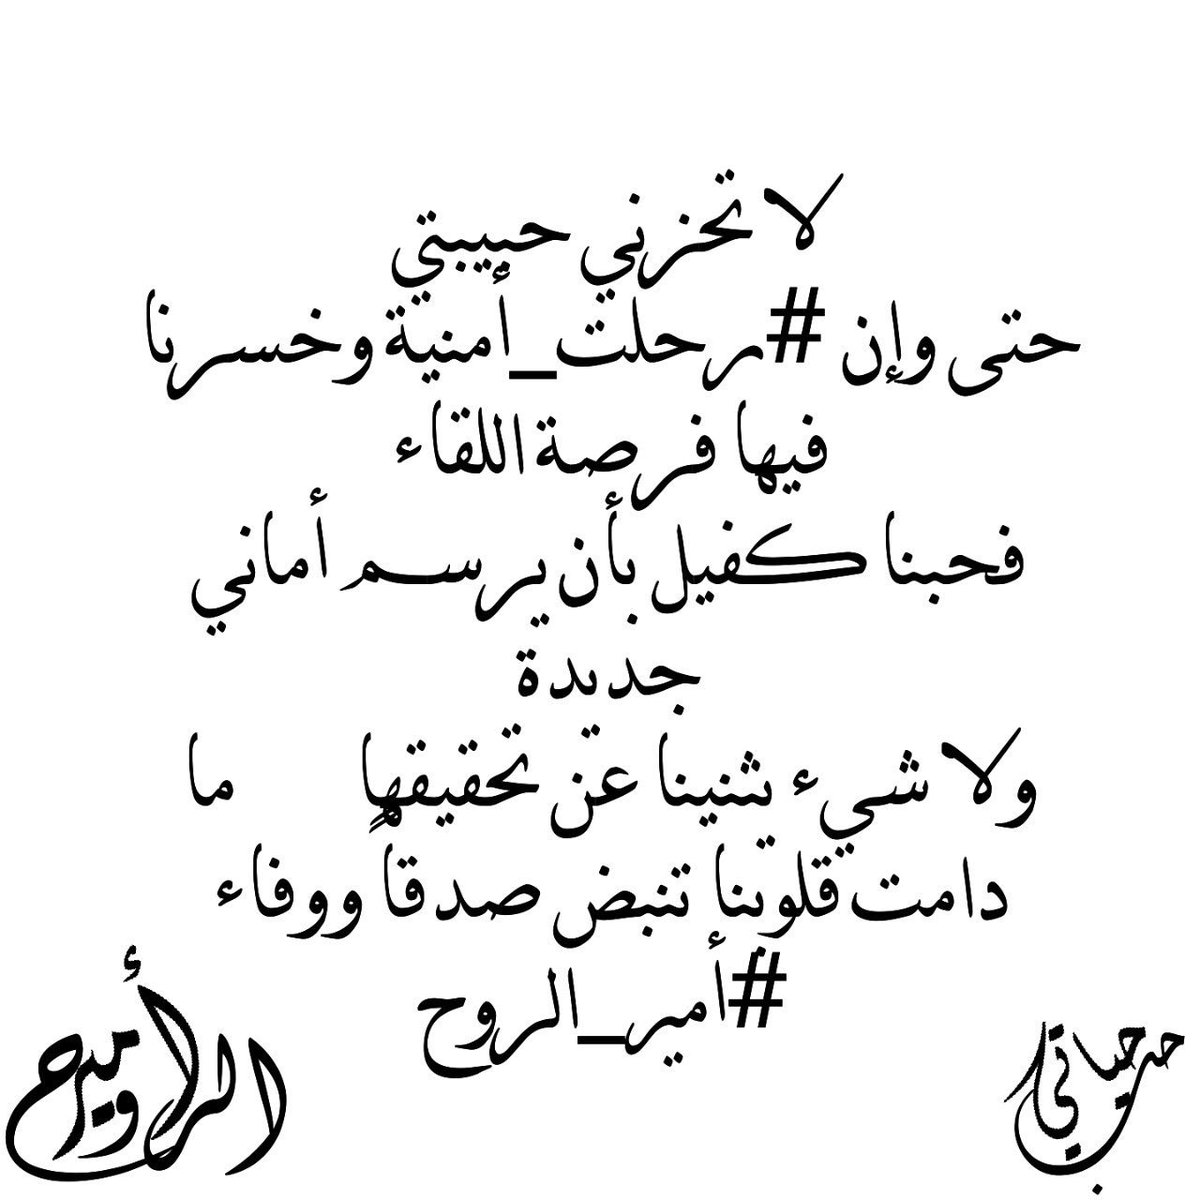 لا تحزني حبيبتي
حتى وإن #رحلت_أمنية وخسرنا
فيها فرصة اللقاء
فحبنا كفيل بأن يرسم أماني
جديدة
ولا شيء يثنينا عن تحقيقها ما
دامت قلوبنا تنبض صدقاً ووفاء
#أمير_الروح
أمير الروح
حب حياتي